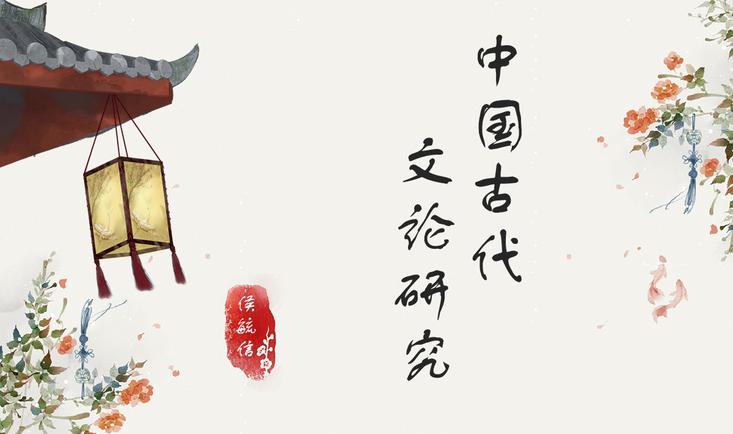 中国古代
文论研究
侯毓信